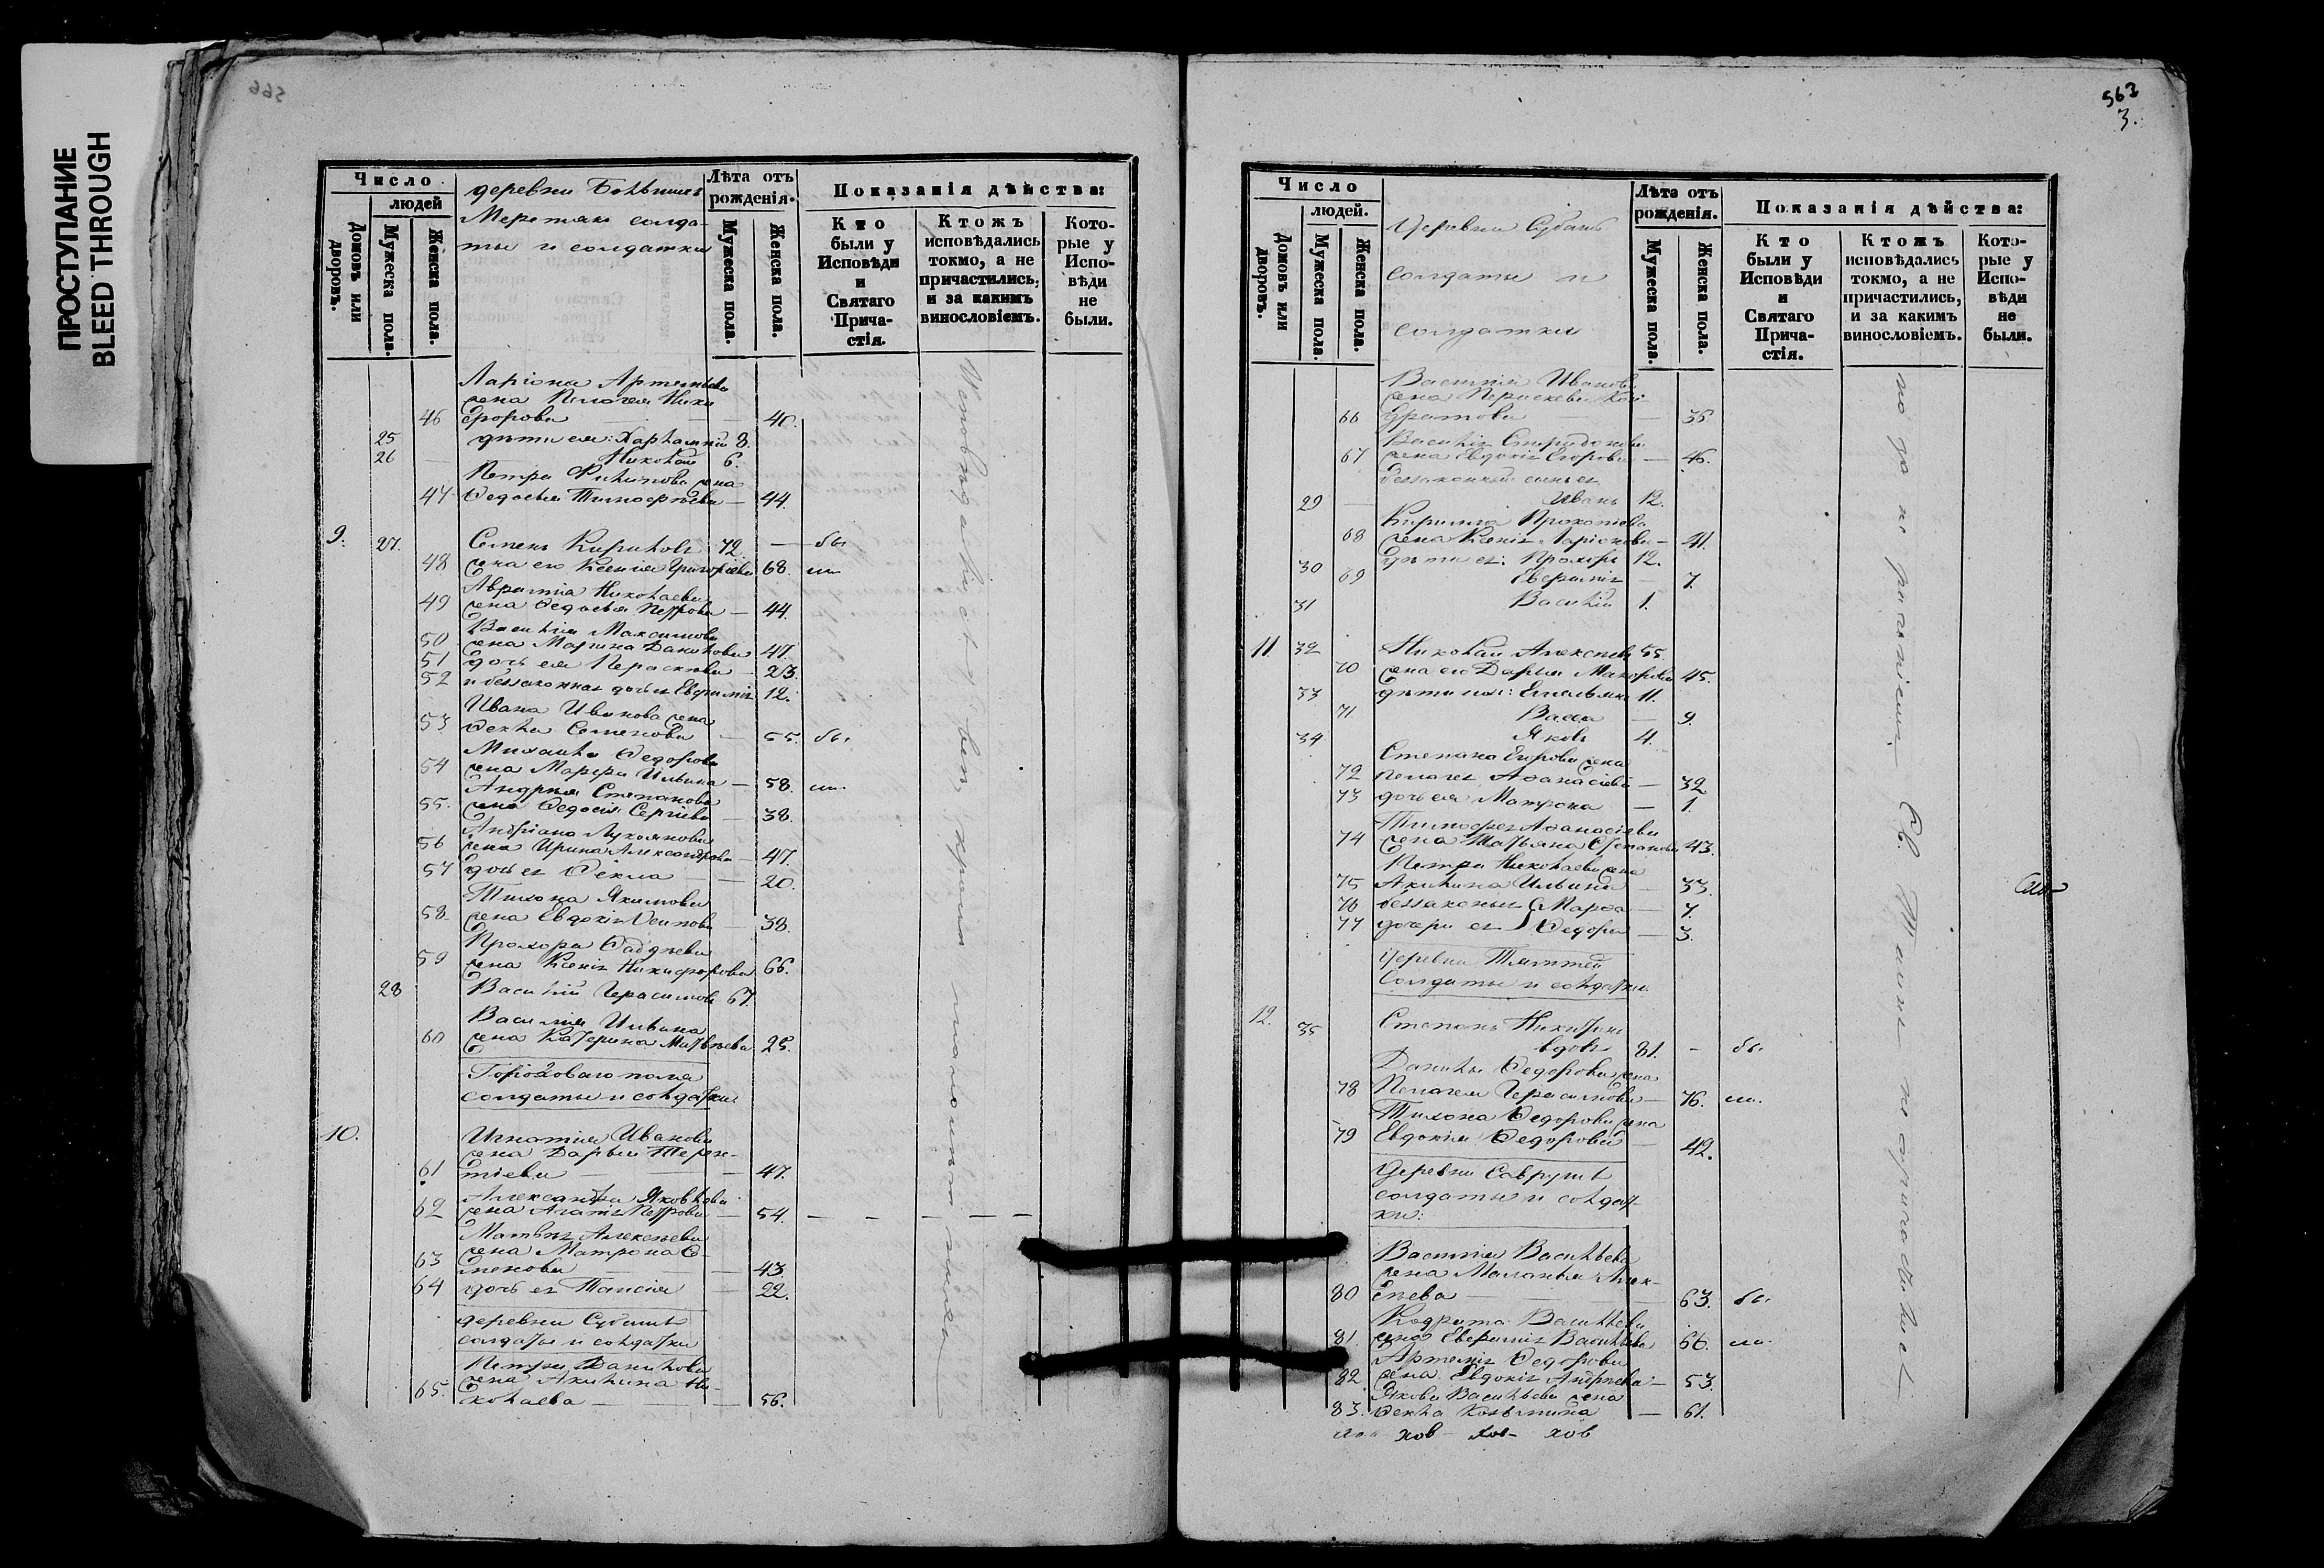 ПРОСТУПАНИЕ
BLEED THROUGH
566
Число
людей
Домовъ или дворовъ.
Мужеска пола.
Женска пола.
деревни
солда-
ты и солдатки
Лѣта отъ
рожденія.
Мужеска пола.
Женска пола.
Показанія дѣйства:
Кто
были у
Исповѣди
и
Святаго
Прича-
стія.
Ктожъ
исповѣдались
токмо, а не
причастились,
и за какимъ
винословіемъ.
Кото-
рые у
Испо-
вѣди
не
были.
Ларіона Артемьева
жена Пелагея Ники
46 форова 40.
25 дѣти ея: Харлампій 8.
26 Николай 6.
Петра Филипова жена
47 Федосья Тимофѣева 44.
9. 27. Семенъ Кириловъ 72. бы
48 жена его Ксенія Григоріева 68. ли
Николаева
49 жена Федосья Петрова 44.
Василія Максимова
50 жена Марина Данилова 47.
51 дочь ея Параскева 23.
52 и беззаконная дочь ея Евфимія 12.
Ивана Иванова жена
53 Фекла Семенова 55. бы
Михаила Федорова
54 жена Марфа Ильина 58. ли
Андрея Степанова
55. жена Федосія Сергѣева 38.
Андріана Лукоянова
56 жена Ирина Александрова 47.
57 дочь ея Фекла 20.
Тихона Якимова
58. жена Евдокія Осипова 38.
Прохора Фадѣева
59 жена Ксенія Никифорова 66.
28 Василій Герасимовъ 67.
Василія Ильина
60 жена Катерина Матвѣева 25.
Гороховаго поля
солдаты и солдатки
10. Игнатія Иванова
жена Дарья Терен-
61 тіева 47.
Александра Яковлева
62 жена Агафія Петрова 54.
Матвѣя Алексѣева
63 жена Матрона Се-
менова 43.
64 дочь ея Таисія 22.
деревни
солдаты и солдатки
Петра Данилова
65. жена Акилина Ни-
колаева 56.
563
3.
Число
людей.
Домовъ или дворовъ.
Мужеска пола.
Женска пола.
Деревни
солдаты и
солдатки
Лѣта отъ
рожденія.
Мужеска пола.
Женска пола.
Показанія дѣйства:
Кто
были у
Исповѣди
и
Святаго
Прича-
стія.
Ктожъ
исповѣдались
токмо, а не
причастились,
и за какимъ
винословіемъ.
Кото-
рые у
Испо-
вѣди
не
были.
Василія Иванова
жена Параскева Кон
66 дратова 35.
Василія Спиридонова
67 жена Евдокія Егорова 46.
беззаконный сынъ ея
29 Иванъ 12.
Кирилла Прокопова
68 жена Ксенія Ларіонова 41.
30 дѣти ея: Прохоръ 12.
69 Евфимія 7.
31 Василій 1.
11. 32 Николай Алексѣевъ 55.
70 жена его Дарья 45.
33 дѣти ихъ: Емельянъ 11.
71 Васса 9.
34 Яковъ 4.
Степана Егорова жена
72 Пелагея Афанасіева 32
73 дочь ея Матрона 1.
Тимофея Афанасіева
74 жена Татьяна Степанова 43.
Петра Николаева жена
75 Акилина Ильина 33.
76 беззаконныя Марфа 7.
77 дочери ея Федора 3.
Деревни
солдаты и солдатки
12. 35 Степанъ Никитинъ
вдовъ 81. бы
Данилы Федорова жена
78 Пелагея Герасимова 76. ли.
Тихона Федорова жена
79 Евдокія Федорова 42.
Деревни
солдаты и солдат-
ки:
Василія Васильева
жена Маланья Алек-
80 сѣева 63. бы
Кодрата Васильева
81 жена Евфимія Васильева 66. ли.
Артемія Федорова
82 жена Евдокія Андрѣева 53.
Якова Васильева жена
83. Фекла Козьмина 61.